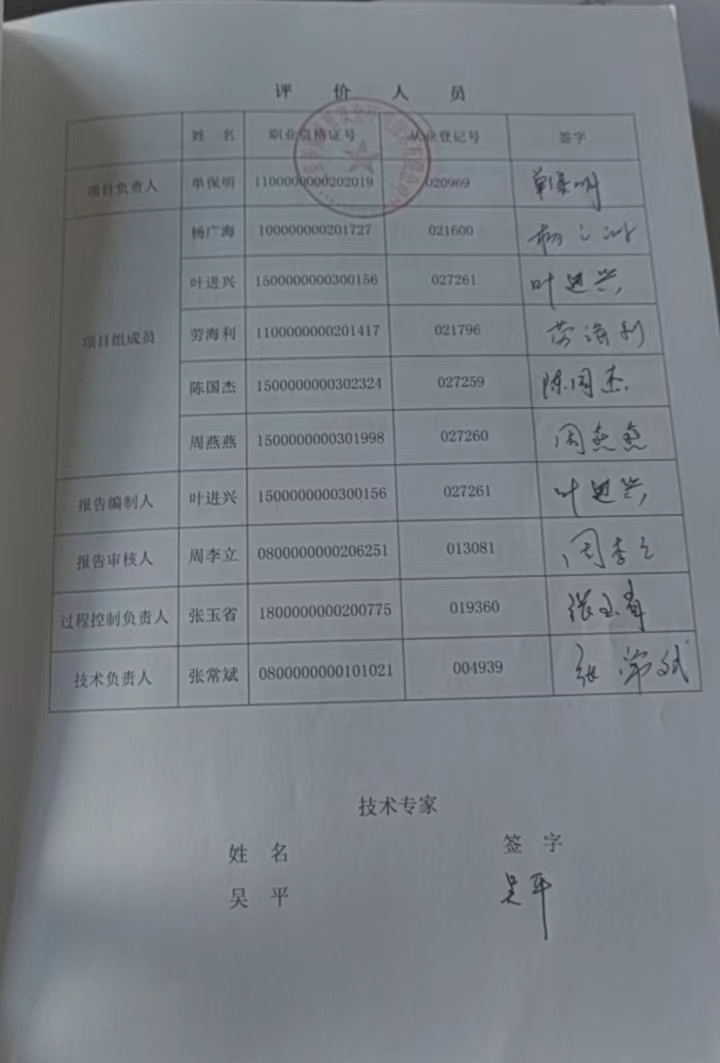 评 价 人 员
姓 名 职业资格证号 从业登记号 签字
项目负责人 单保明 1100000000202019 020969 单保明
杨广海 100000000201727 021600 杨广海
叶进兴 1500000000300156 027261 叶进兴
项目组成员 劳海利 1100000000201417 021796 劳海利
陈国杰 1500000000302324 027259 陈国杰
周燕燕 1500000000301998 027260 周燕燕
报告编制人 叶进兴 1500000000300156 027261 叶进兴
报告审核人 周李立 0800000000206251 013081 周李立
过程控制负责人 张玉省 1800000000200775 019360 张玉省
技术负责人 张常斌 0800000000101021 004939 张常斌
技术专家
姓 名 签 字
吴 平 吴平